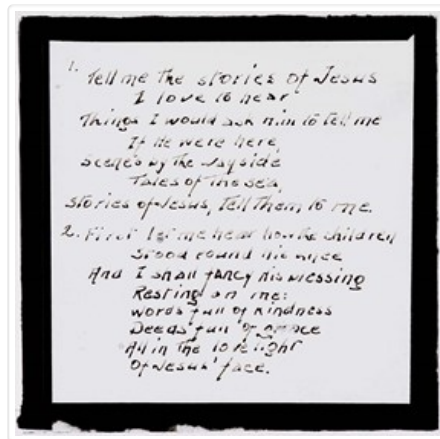 1. Tell me the stories of Jesus
I love to hear
Things I would ask him to tell me
If He were here,
Scenes by the wayside
Tales of the sea,
Stories of Jesus, Tell them to me.
2. First let me hear how the children
Stood round his knee
And I shall fancy his blessing
Resting on me:
Words full of kindness
Deeds full of grace
All in the love light
Of Jesus' face.